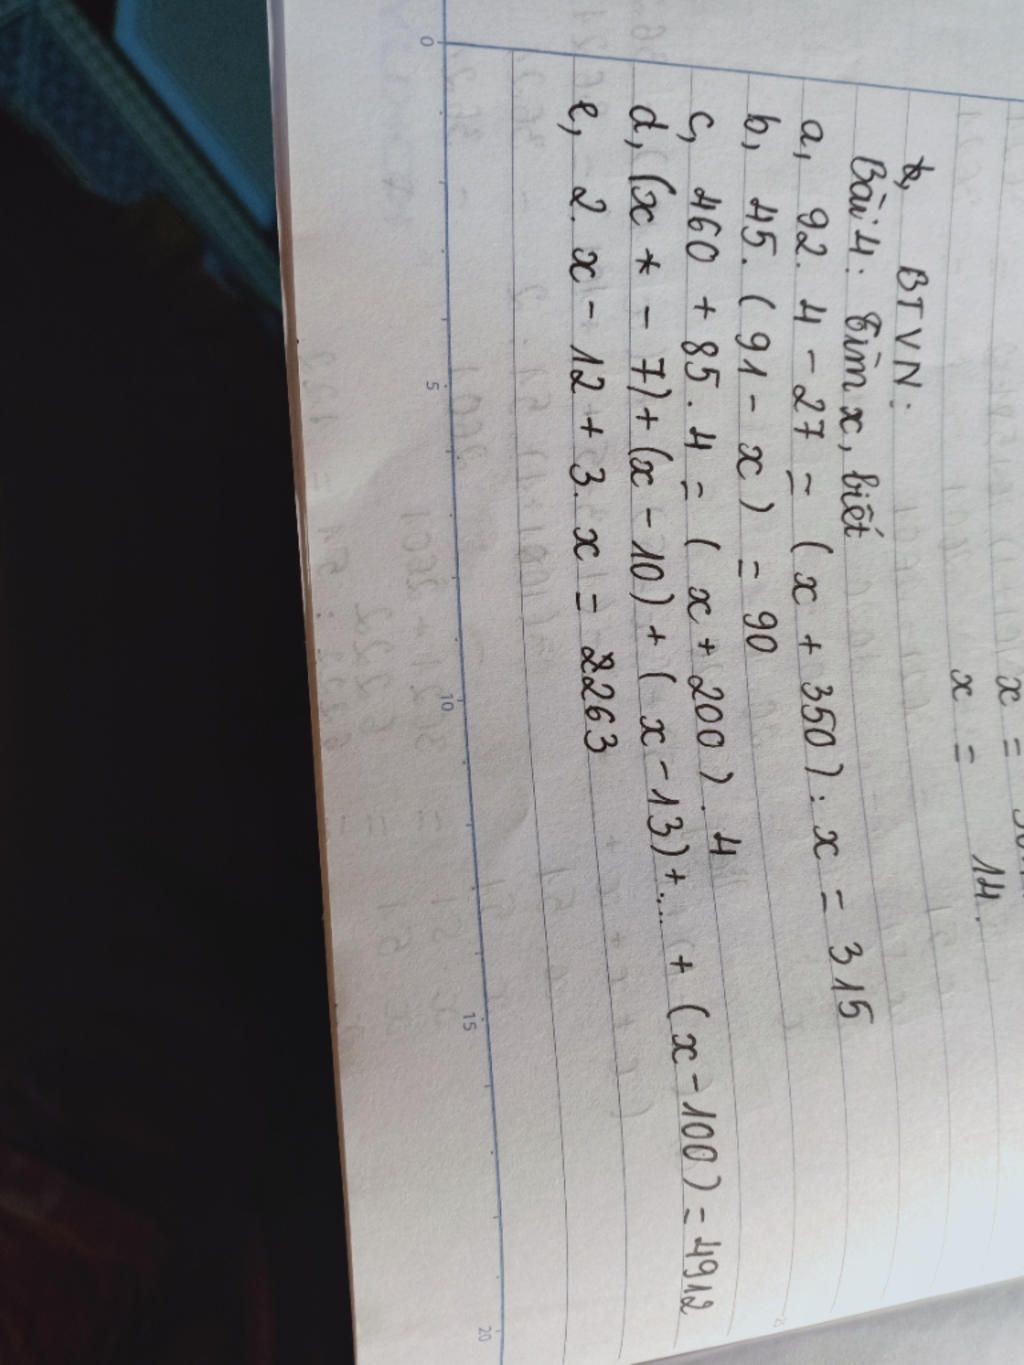 x = 
x = 14.
b, BTVN:
Bài 4: Tìm x, biết
a, 92. 4 - 27 = (x + 350) : x = 315
b, 45. (91 - x) = 90
c, 460 + 85. 4 = (x + 200). 4
d, (x - 7) + (x - 10) + (x - 13) + ... + (x - 100) = 4912
e, 2. x - 12 + 3. x = 2263
0
5
10
15
20